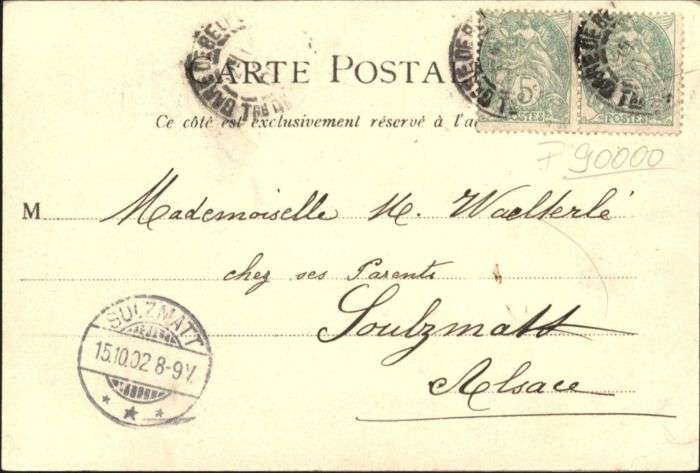 CARTE POSTA
Ce côté est exclusivement réservé à l'a
GARE DE
GARE DE
GARE DE
5c
POSTES
POSTES
F 90000
M Mademoiselle M. Waelterlé
chez ses Parents
Soulzmatt
Alsace
SULZMATT
15.10.02 8-9V.